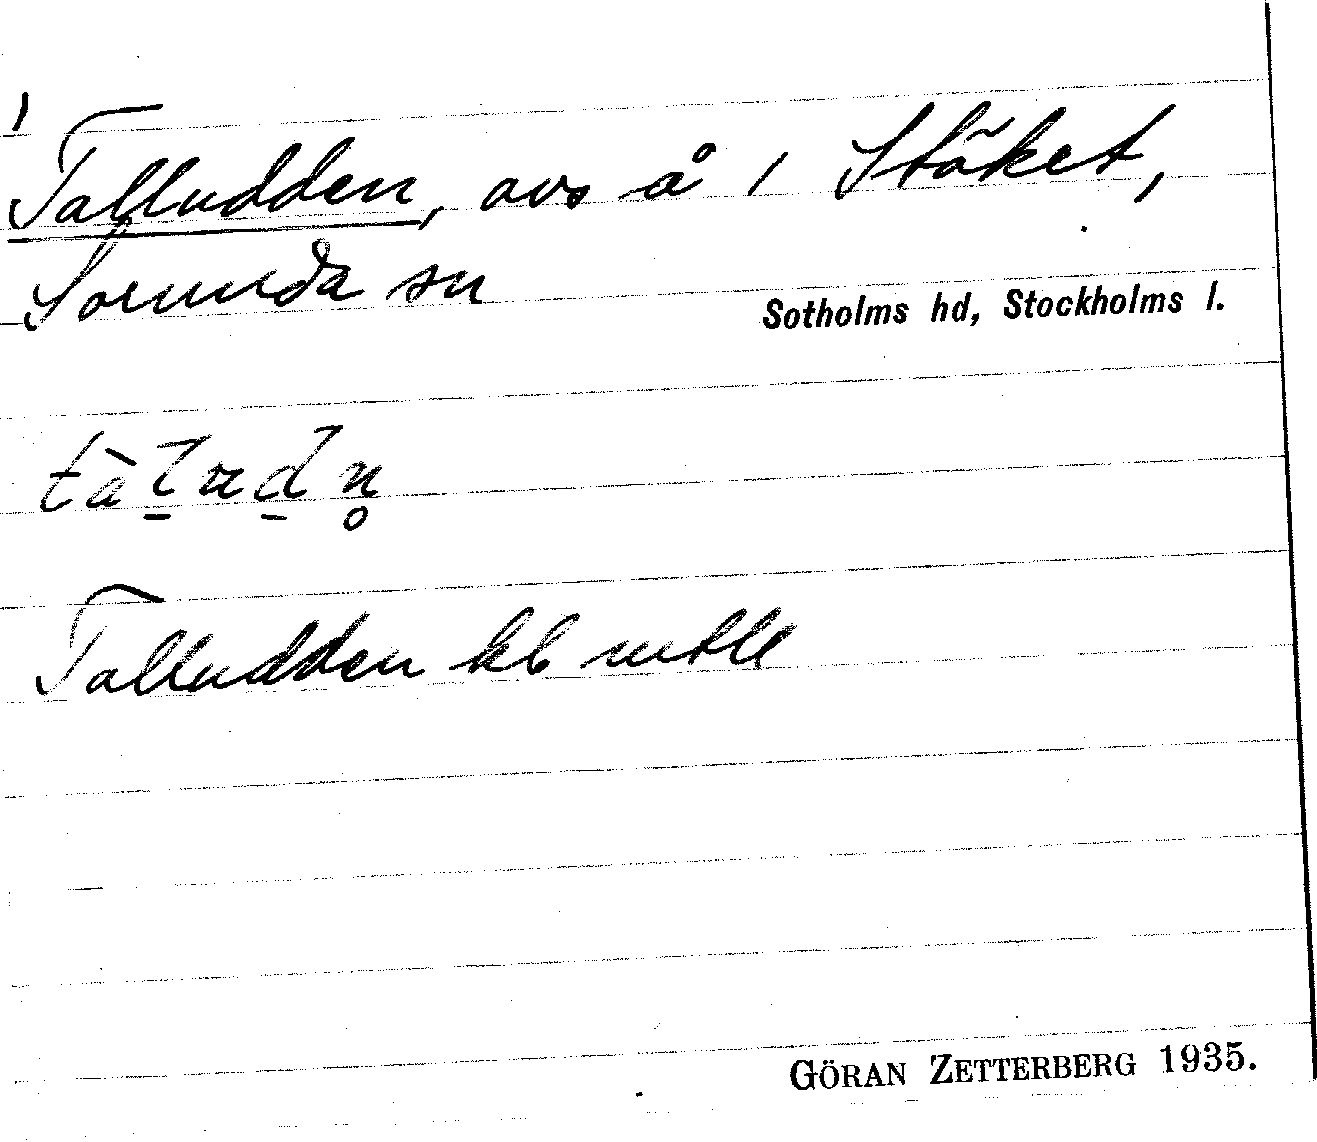 1
Talludden, avs å 1 Stöket,
Sorunda sn
Sotholms hd, Stockholms l.
tàl̠ud̠n̥
Talludden kb mtll
GÖRAN ZETTERBERG 1935.